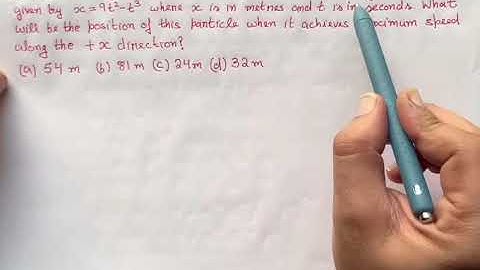 given by x = 9t² - t³ where x is in metres and t is in seconds. What
will be the position of this particle when it achieves maximum speed
along the +x direction?
(a) 54 m (b) 81 m (c) 24 m (d) 32 m